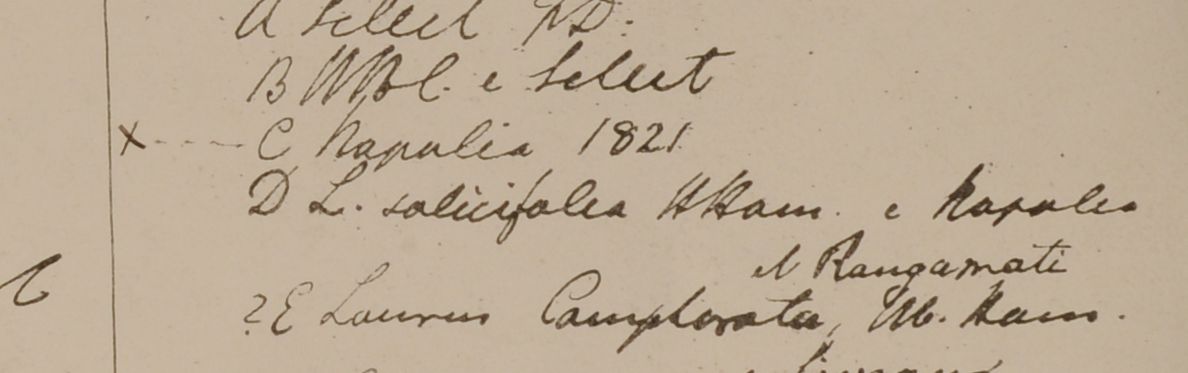 A Select FD.
B HBC. e Select
x C Napalia 1821
D L. salicifolia HHam. e Napalia
et Rangamati
?E Laurus Camphorata, Hb. Ham.